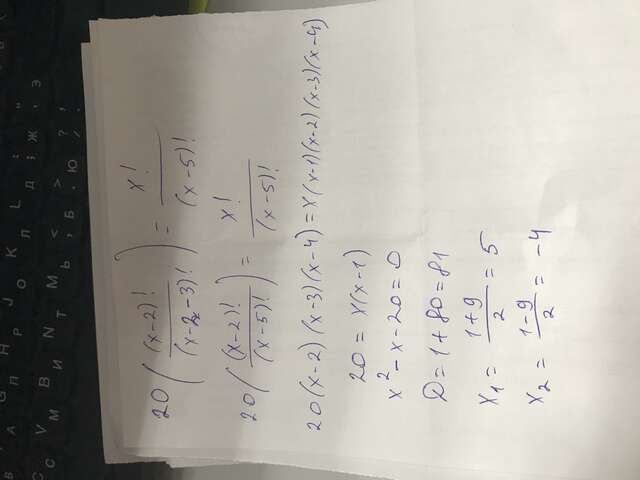 20 ( (x-2)! / (x-2-3)! ) = x! / (x-5)!
20 ( (x-2)! / (x-5)! ) = x! / (x-5)!
20(x-2)(x-3)(x-4)=x(x-1)(x-2)(x-3)(x-4)
20 = x(x-1)
x² - x - 20 = 0
D = 1 + 80 = 81
x₁ = (1+9) / 2 = 5
x₂ = (1-9) / 2 = -4